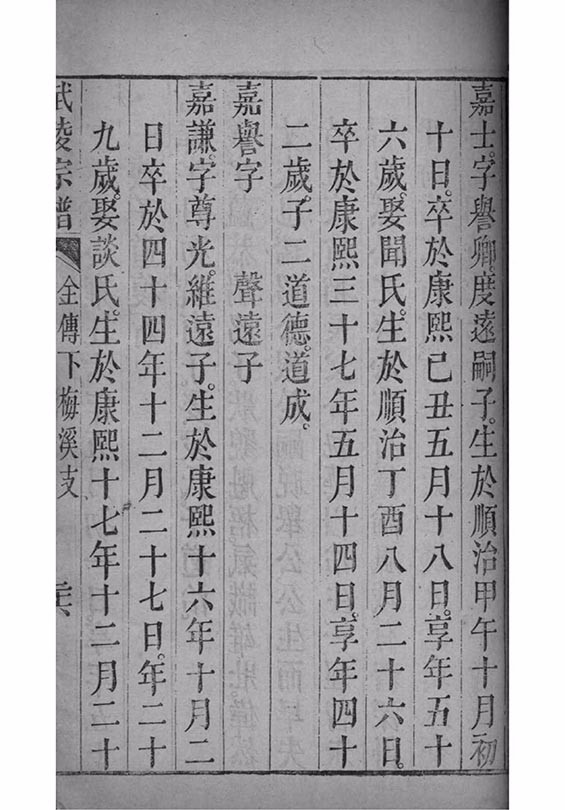 嘉士。字譽卿。度遠嗣子。生於順治甲午十月初
十日。卒於康熙己丑五月十八日。享年五十
六歲。娶聞氏。生於順治丁酉八月二十六日。
卒於康熙三十七年五月十四日。享年四十
二歲。子二道德。道成。
嘉譽字　聲遠子
嘉謙。字尊光。維遠子。生於康熙十六年十月二
日卒於四十四年十二月二十七日。年二十
九歲。娶談氏。生於康熙十七年十二月二十
武陵宗譜　全傳下梅溪支